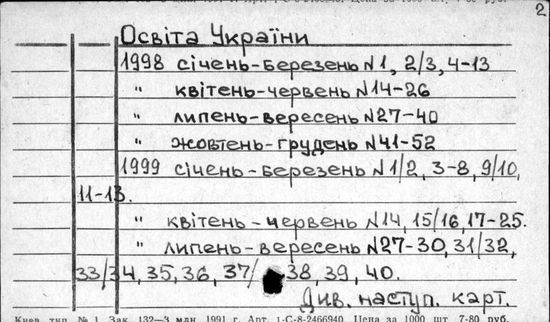 2
Освіта України
1998 січень-березень N1, 2/3, 4-13
" квітень-червень N14-26
" липень-вересень N27-40
" жовтень-грудень N41-52
1999 січень-березень N1/2, 3-8, 9/10,
11-13.
" квітень-червень N14, 15/16, 17-25.
" липень-вересень N27-30, 31/32,
33/34, 35, 36, 37/ 38, 39, 40.
Див. наступ. карт.
Киев. тип. № 1 Зак. 132—3 млн. 1991 г. Арт. 1-С-8-2466940 Цена за 1000 шт 7-80 руб.